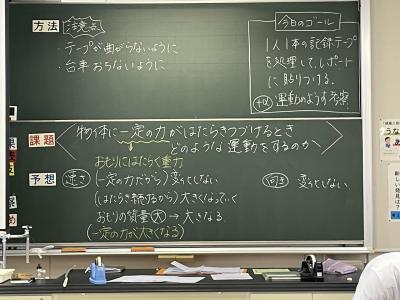 方法
注意点
・テープが曲がらないように
・台車 おちないように
今日のゴール
1人1本の記録テープ
を処理して、レポート
に貼りつける。
+α 運動のようす考察
課題
物体に一定の力がはたらきつづけるとき
どのような運動をするのか
おもりにはたらく重力
予想
速さ
(一定の力だから) 変化しない
(はたらき続けるから) 大きくなっていく
おもりの質量大 → 大きなる
(一定の力が大きくなる)
向き 変化しない